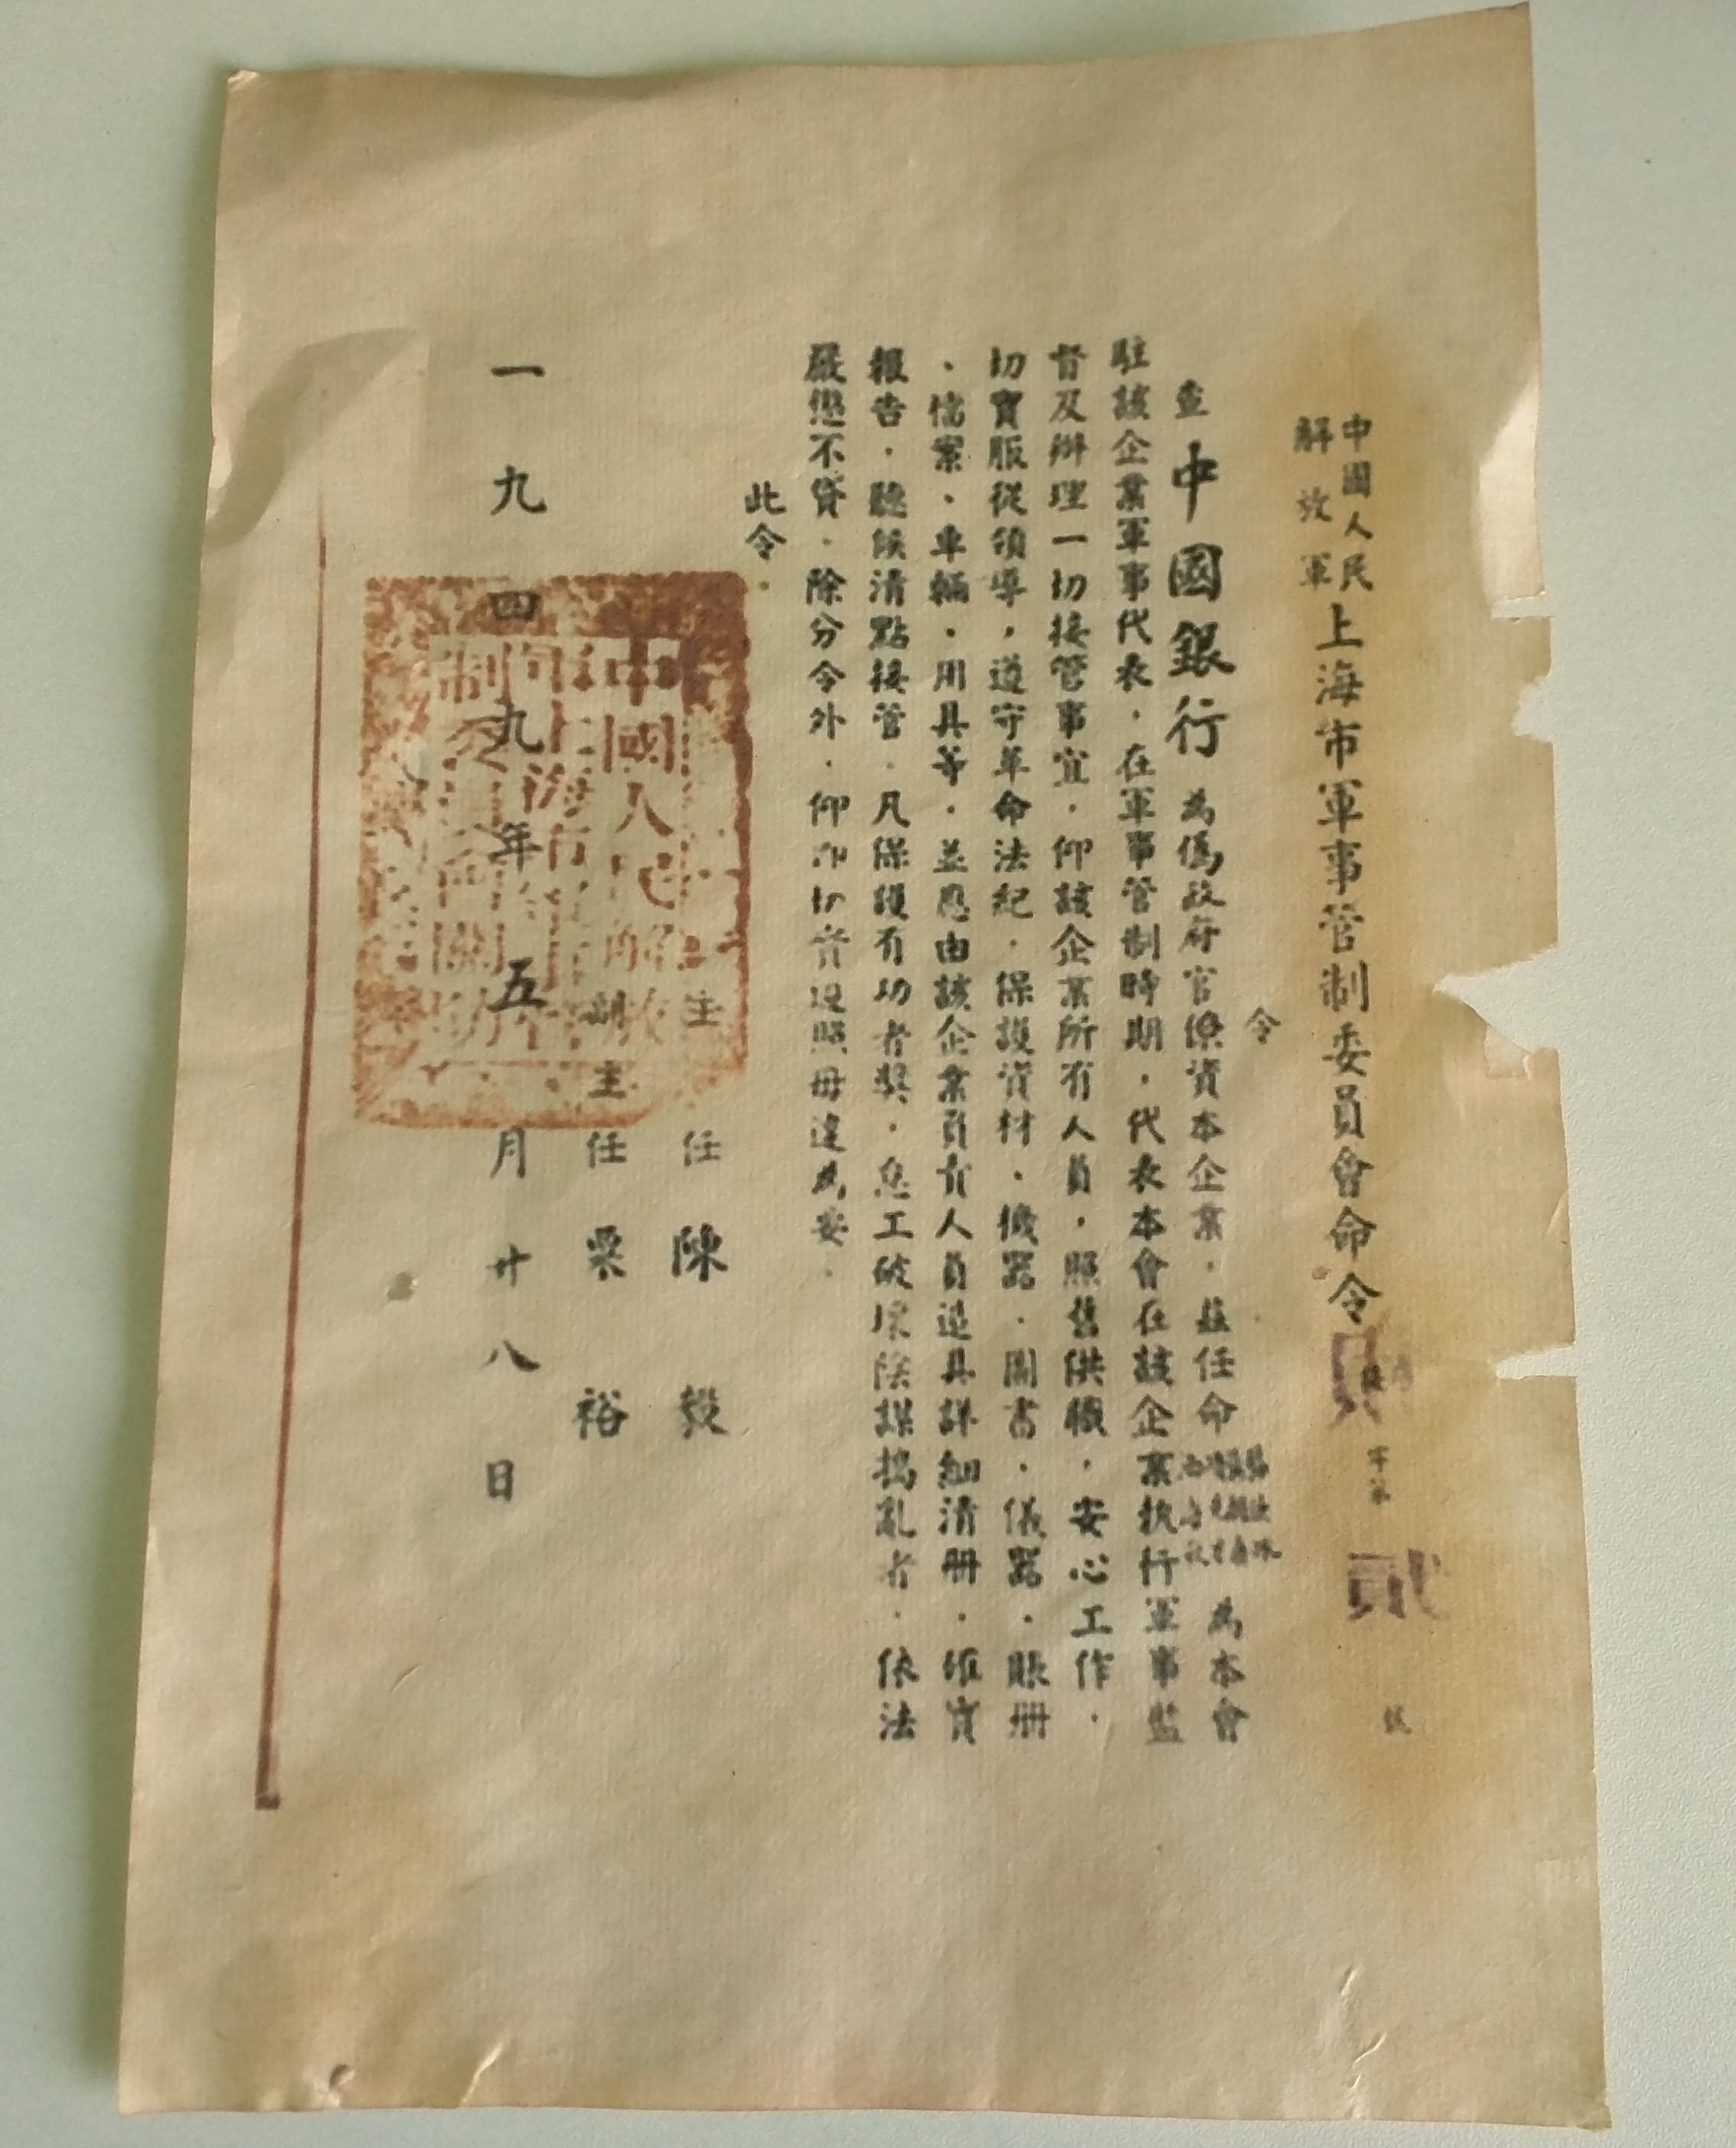 中國人民
解放軍
上海市軍事管制委員會命令
字第
號
令
查中國銀行為偽政府官僚資本企業．茲任命
為本會
駐該企業軍事代表．在軍事管制時期．代表本會在該企業执行軍事監
督及辦理一切接管事宜．仰該企業所有人員，照舊供職，安心工作．
切實服從領導，遵守革命法紀．保護資材．機器．圖書．儀器．賬册
、檔案、車輛．用具等．並應由該企業負責人員造具詳細清册．确實
報告．聽候清點接管．凡保護有功者奬．怠工破壞陰謀搗亂者．依法
嚴懲不貸．除分令外．仰即切實遵照毋違為要．
此令．
主任陳毅
副主任粟裕
一九四九年五月廿八日
中國人民解放
軍上海市軍事
管制委員會關防